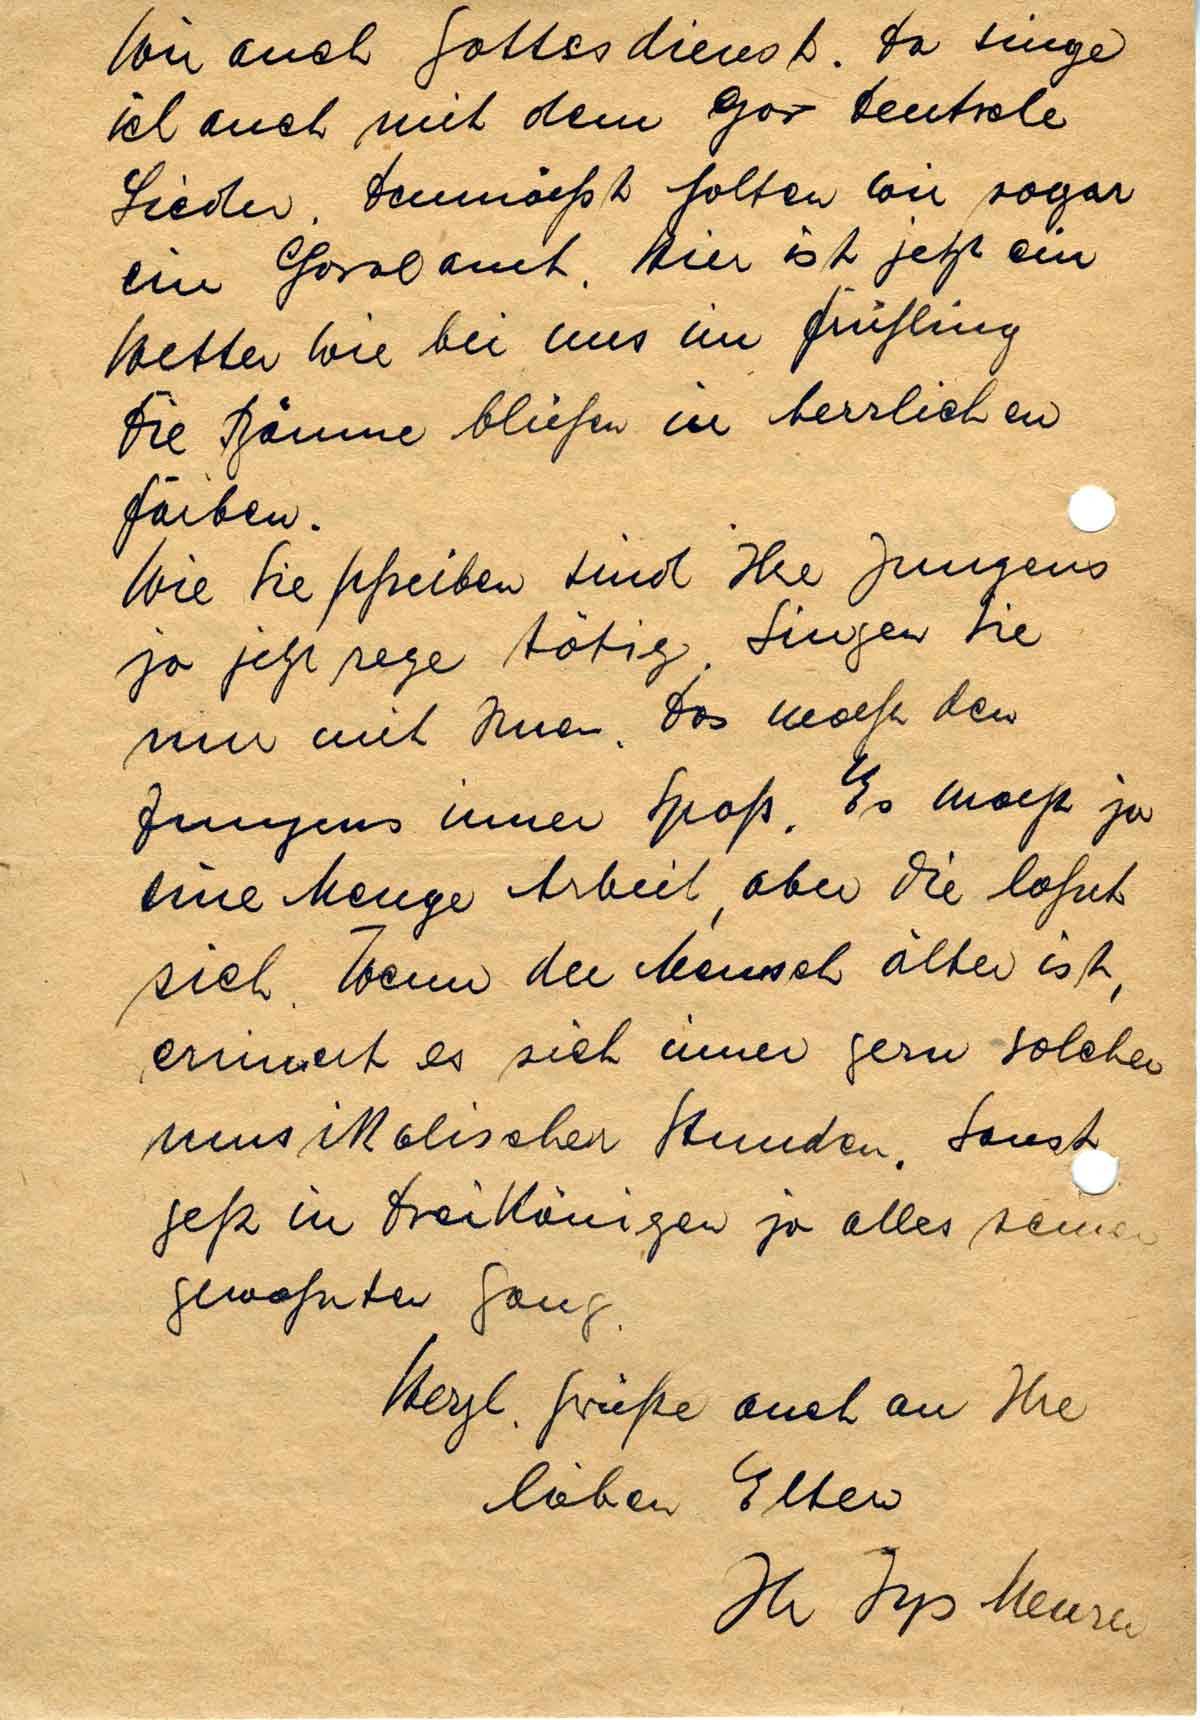 wir auch Gottesdienst. Da singe
ich auch mit dem Chor Deutsche
Lieder. Demnächst halten wir sogar
ein Choralamt. Hier ist jetzt ein
Wetter wie bei uns im Frühling
Die Bäume blühen in herrlichen
Farben.
Wie Sie schreiben sind Ihre Jungens
ja jetzt rege tätig. Singen Sie
nur mit Ihnen. Das macht den
Jungens immer Spaß. Es macht ja
eine Menge Arbeit, aber die lohnt
sich. Wenn der Mensch älter ist,
erinnert es sich immer gern solcher
musikalischer Stunden. Sonst
geht in Dreikönigen ja alles seinen
gewohnten Gang.
Herzl. Grüße auch an Ihre
lieben Eltern
Ihr Meurer